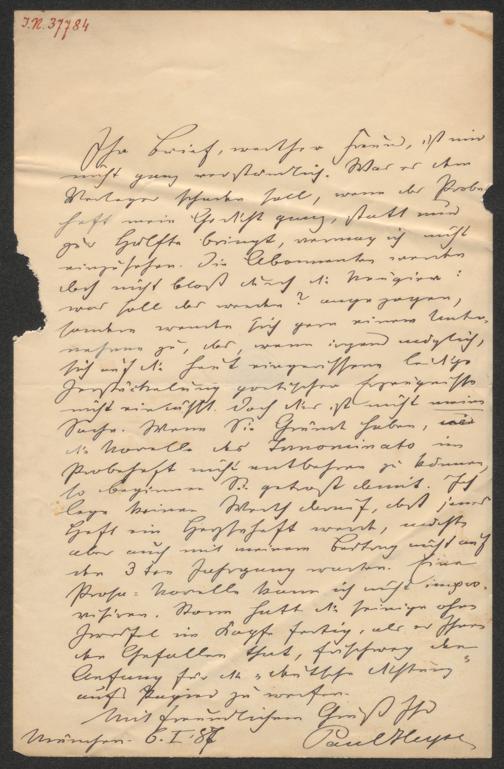 J.N. 37784
Ihr Brief, werther Freund, ist mir
nicht ganz verständlich. Was es dem
Verleger schaden soll, wenn das Probe-
heft mein Gedicht ganz, statt nur
zur Hälfte bringt, vermag ich nicht
einzusehen. Die Abonnenten werden
doch nicht bloß durch die Neugier:
was soll das werden? angezogen,
sondern wenden sich gern einem Unter-
nehmen zu, das, wenn irgend möglich,
sich auf die heut eingerissene leidige
Zerstückelung poetischer Erzeugnisse
nicht einläßt. Doch das ist nicht meine
Sache. Wenn Sie Grund haben,
die Novelle des Innominato im
Probeheft nicht entbehren zu können,
so beginnen Sie getrost damit. Ich
lege keinen Werth darauf, daß jenes
Heft ein Heyseheft werde, möchte
aber auch mit meinem Beitrag nicht auf
den 3ten Jahrgang warten. Eine
Prosa-Novelle kann ich nicht impro-
visiren. Storm hatte die seinige ohne
Zweifel im Kopfe fertig, als er Ihnen
den Gefallen that, frischweg den
Anfang für die "deutsche Dichtung"
aufs Papier zu werfen.
Mit freundlichem Gruß Ihr
München. 6. I. 87 Paul Heyse